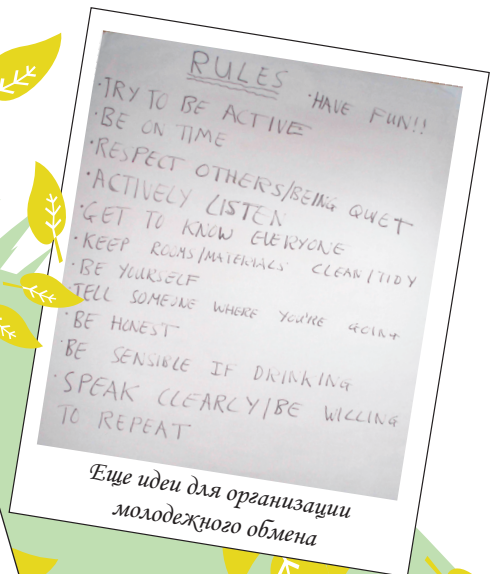 RULES
·HAVE FUN!!
·TRY TO BE ACTIVE
·BE ON TIME
·RESPECT OTHERS/BEING QUIET
·ACTIVELY LISTEN
·GET TO KNOW EVERYONE
·KEEP ROOMS/MATERIALS CLEAN/TIDY
·BE YOURSELF
·TELL SOMEONE WHERE YOU'RE GOING
·BE HONEST
·BE SENSIBLE IF DRINKING
·SPEAK CLEARLY/BE WILLING
TO REPEAT
Еще идеи для организации
молодежного обмена